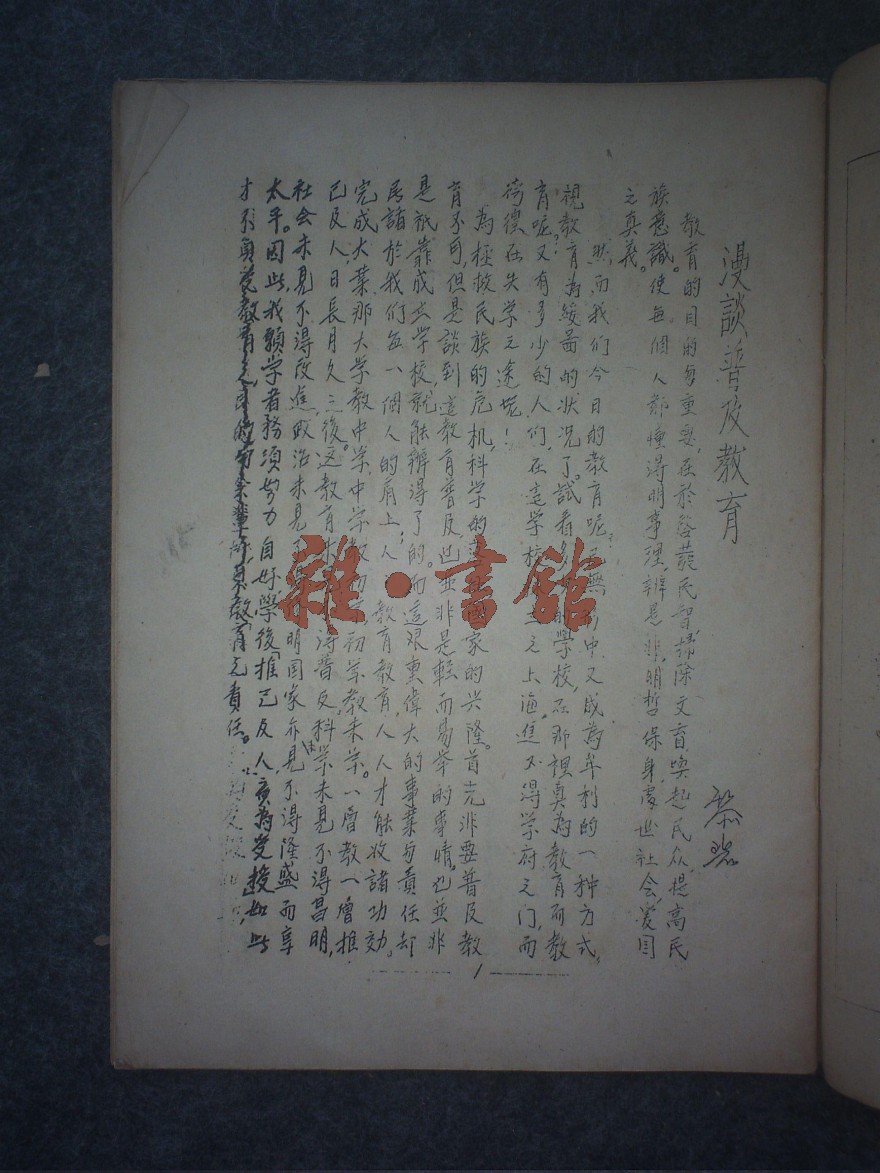 漫談普及教育
教育的目的与重要,在於啓發民智掃除文盲,喚起民众,提高民
族意識。使每個人都懂得明事理,辨是非,明哲保身,處世社会,爱国
之真義。
然而我们今日的教育呢?无無形中又成為牟利的一种方式。
視教育為緩啚的状况了。試看 的学校,在那裡真為教育而教
育呢?又有多少的人们,在這学校 之上海,進不得学府之门,而
徬徨在失学之途呢!
為拯救民族的危机,科学的 國家的兴隆。首先非要普及教
育不可,但是談到這教育普及,也並非是輕而易举的事情,也並非
是祇靠成立学校,就能辦得了的。而這艰重偉大的事業与責任却
居諸於我们每一個人的肩上;人人教育教育,人人才能收諸功効。
完成大業那大学教中学,中学教初 初学教未学。一層教一層推
己及人,日長月久之後。這教育 得普及,科学未見不得昌明,
社会未見不得改進,政治未見不得 明国家亦未見不得隆盛而享
太平。因此,我願学者務須努力,自好学後「推己及人」廣為受授如此
才不負受教育 教育之責任。
雜·書館
1